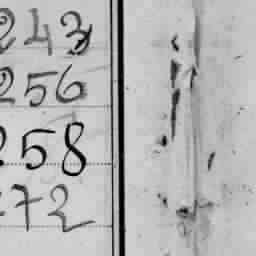 243
256
258
272